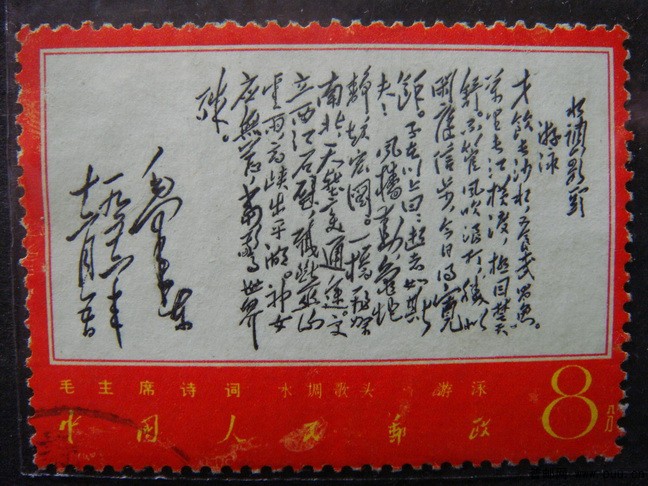 水调歌头
游泳
才饮长沙水，又食武昌鱼。
万里长江横渡，极目楚天
舒。不管风吹浪打，胜似
闲庭信步，今日得宽
馀。子在川上曰：逝者如斯
夫！风樯动，龟蛇
静，起宏图。一桥飞架
南北，天堑变通途。更
立西江石壁，截断巫山
云雨，高峡出平湖。神女
应无恙，当惊世界
殊。
毛泽东
一九五六年
十二月五日
毛主席诗词 水调歌头 游泳
中國人民郵政
8分